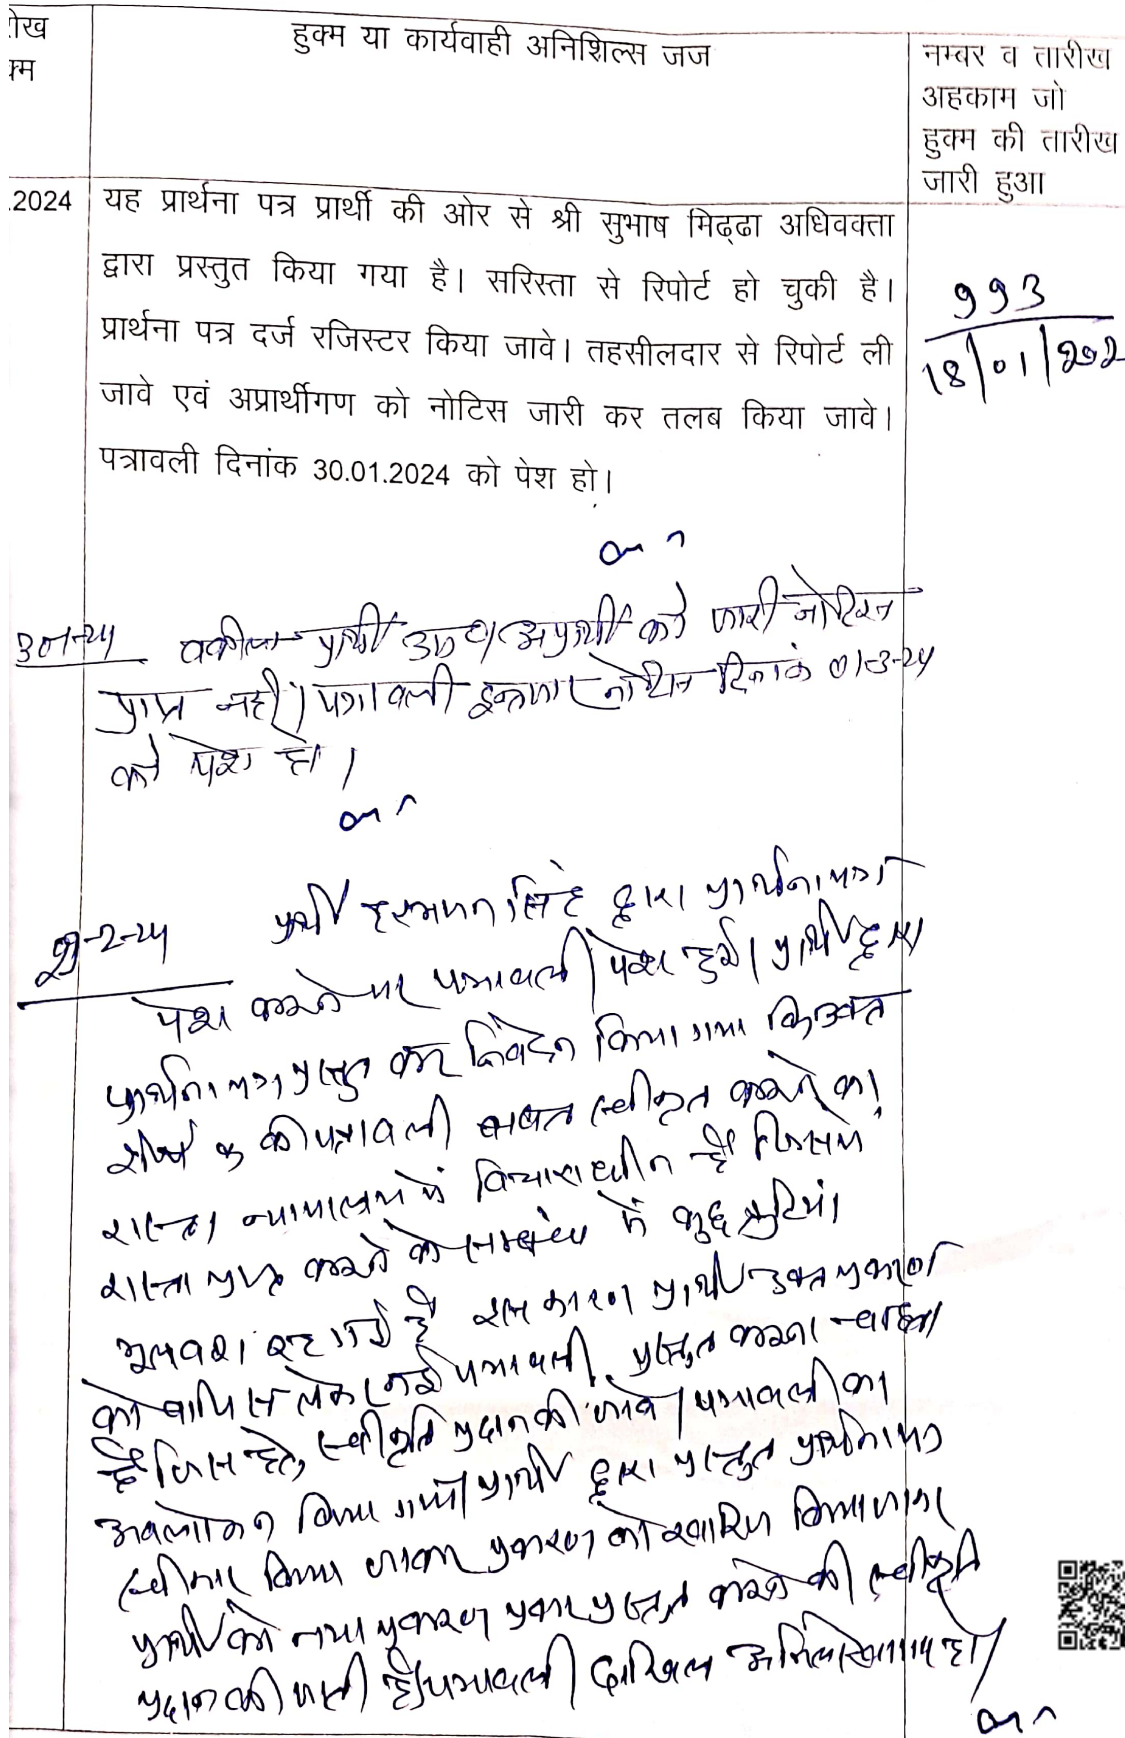 रीख
क्म
हुक्म या कार्यवाही अनिशिल्स जज
नम्बर व तारीख
अहकाम जो
हुक्म की तारीख
जारी हुआ
.2024
यह प्रार्थना पत्र प्रार्थी की ओर से श्री सुभाष मिढ्ढा अधिवक्ता
द्वारा प्रस्तुत किया गया है। सरिस्ता से रिपोर्ट हो चुकी है।
प्रार्थना पत्र दर्ज रजिस्टर किया जावे। तहसीलदार से रिपोर्ट ली
जावे एवं अप्रार्थीगण को नोटिस जारी कर तलब किया जावे।
पत्रावली दिनांक 30.01.2024 को पेश हो।
993
18/01/202
30-1-24 वकील प्रार्थी उप०/अप्रार्थी को जारी नोटिस
प्राप्त नहीं। पत्रावली इन्तजार नोटिस दिनांक 01-3-24
को पेश हो।
-2-24 प्रार्थी सिंह द्वारा प्रार्थना पत्र
पेश करने पर पत्रावली पेश हुई। प्रार्थी द्वारा
प्रार्थना पत्र प्रस्तुत कर निवेदन किया गया कि उक्त
की पत्रावली बाबत स्वीकृत करने का
रास्ता न्यायालय में विचाराधीन है जिसमे
रास्ता प्राप्त करने के सम्बंध में कुछ त्रुटियां
भूलवश रह गई है इस कारण प्रार्थी उक्त प्रकरण
को वापिस लेकर नई पत्रावली प्रस्तुत करना चाहता
है जिस हेतु स्वीकृति प्रदान की जावे। पत्रावली का
अवलोकन किया गया। प्रार्थी द्वारा प्रस्तुत प्रार्थना पत्र
स्वीकार किया जाकर प्रकरण को खारिज किया जाकर
प्रार्थी को नया प्रकरण प्रस्तुत करने की स्वीकृति
प्रदान की जाती है। पत्रावली दाखिल अभिलेखागार हो।